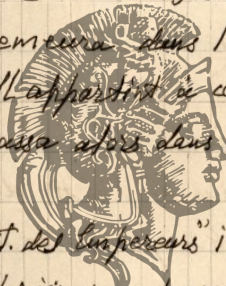 emeura dans l
Il appartint à c
assa alors dans
t. des Empereurs" i